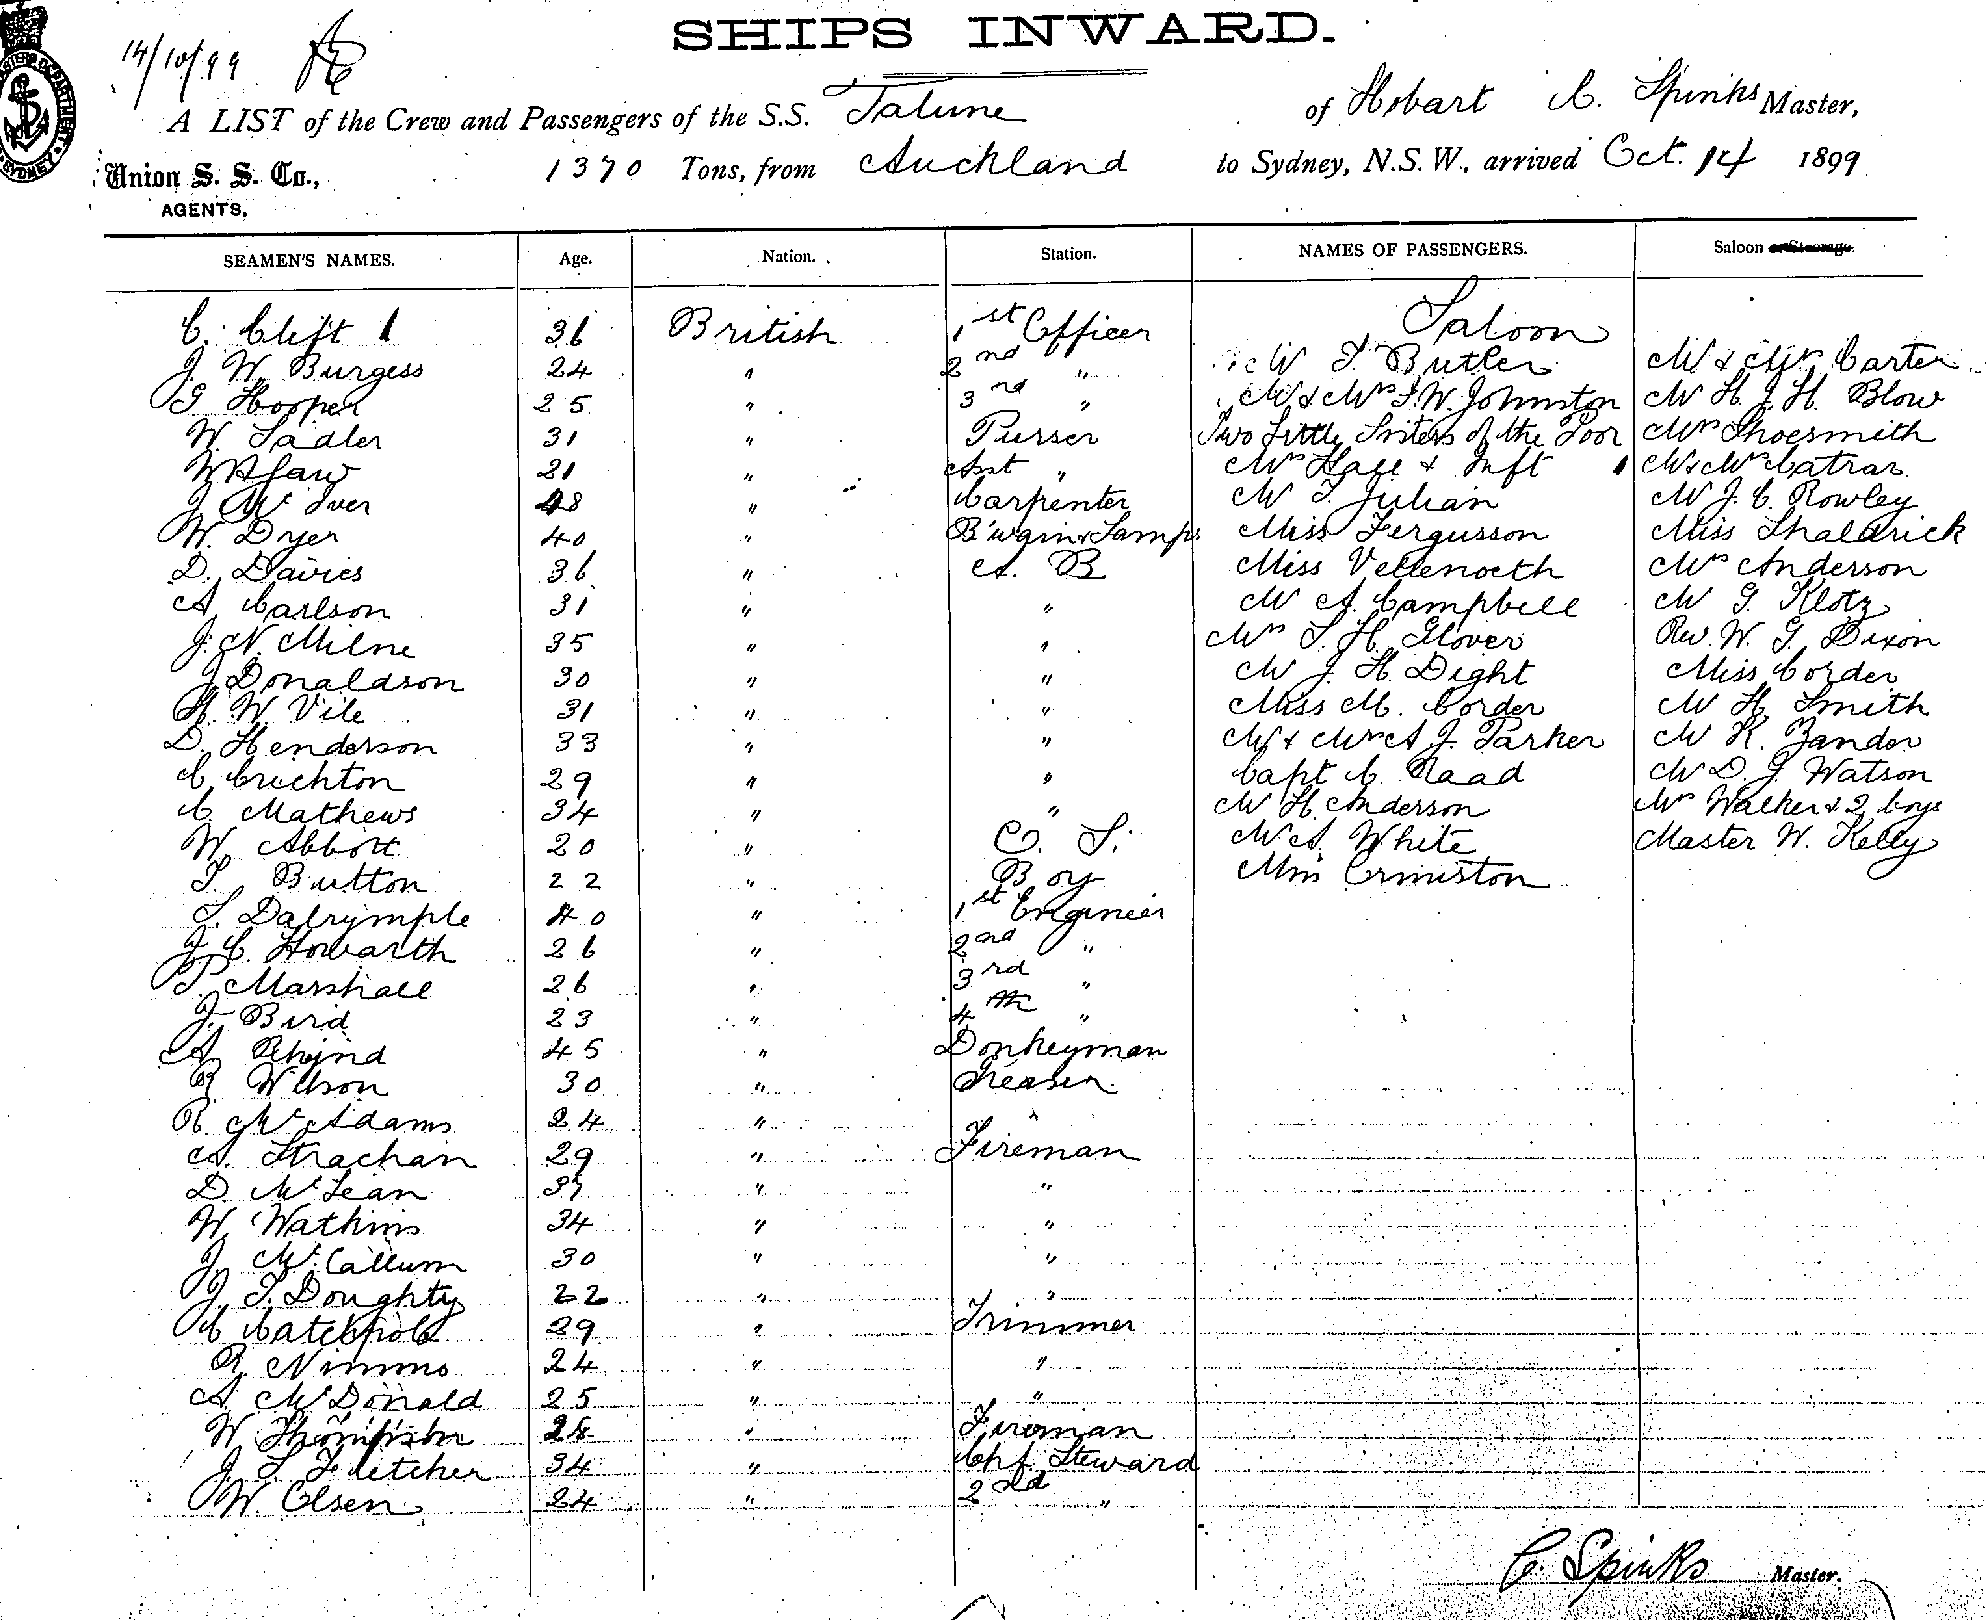 SHIPS INWARD.
14/10/99
A LIST of the Crew and Passengers of the S.S. Talune of Hobart C. Spinks Master,
Union S. S. Co., 1370 Tons, from Auckland to Sydney, N.S.W., arrived Oct. 14 1899
AGENTS,
SEAMEN'S NAMES. Age. Nation. Station. NAMES OF PASSENGERS. Saloon or Steerage.
Saloon
C. Clift 1 36 British 1st Officer
J. W. Burgess 24 " 2nd " Mr T. Butler Mr & Mrs Carter
G Hooper 25 " 3rd " Mr & Mrs F. W. Johnston Mr H. J. H. Blow
W. Sadler 31 " Purser Two Little Sisters of the Poor Mrs Shoesmith
W H Law 21 " Asst " Mrs Hall & Inft Mr & Mrs Catran
J McIver 48 " Carpenter Mr T. Julian Mr J. C. Rowley
W. Dyer 40 " B'swain & Lamps Miss Fergusson Miss Shaldrick
D. Davies 36 " A. B Miss Vellenoeth Mrs Anderson
A Carlson 31 " " Mr A. Campbell Mr G. Klotz
J. N. Milne 35 " " Mrs T. H. Glover Rev. W. G. Dixon
J Donaldson 30 " " Mr J. H. Dight Miss Corder
H. W. Vile 31 " " Miss M. Corder Mr H. Smith
D. Henderson 33 " " Mr & Mrs A J. Parker Mr K. Zander
C Crichton 29 " " Capt C. Raad Mr D. J Watson
C. Mathews 34 " " Mr H. Anderson Mrs Walker & 2 boys
W. Abbott 20 " O. S. Mr A. White Master W. Kelly
T. Button 22 " Boy Miss Ormiston
S. Dalrymple 40 " 1st Engineer
J. C. Howarth 26 " 2nd "
T. Marshall 26 " 3rd "
J. Bird 23 " 4th "
A Rhind 45 " Donkeyman
R Wilson 30 " Greaser
R. McAdams 24 " "
A. Strachan 29 " Fireman
D. McLean 37 " "
W. Watkins 34 " "
J. McCallum 30 " "
J. T. Doughty 22 " "
C Catchpole 29 " Trimmer
R Nimmo 24 " "
A. McDonald 25 " "
W Thompson 28 " Fireman
J. S. Fletcher 34 " Chf Steward
W. Olsen 24 " 2nd "
C. Spinks Master.